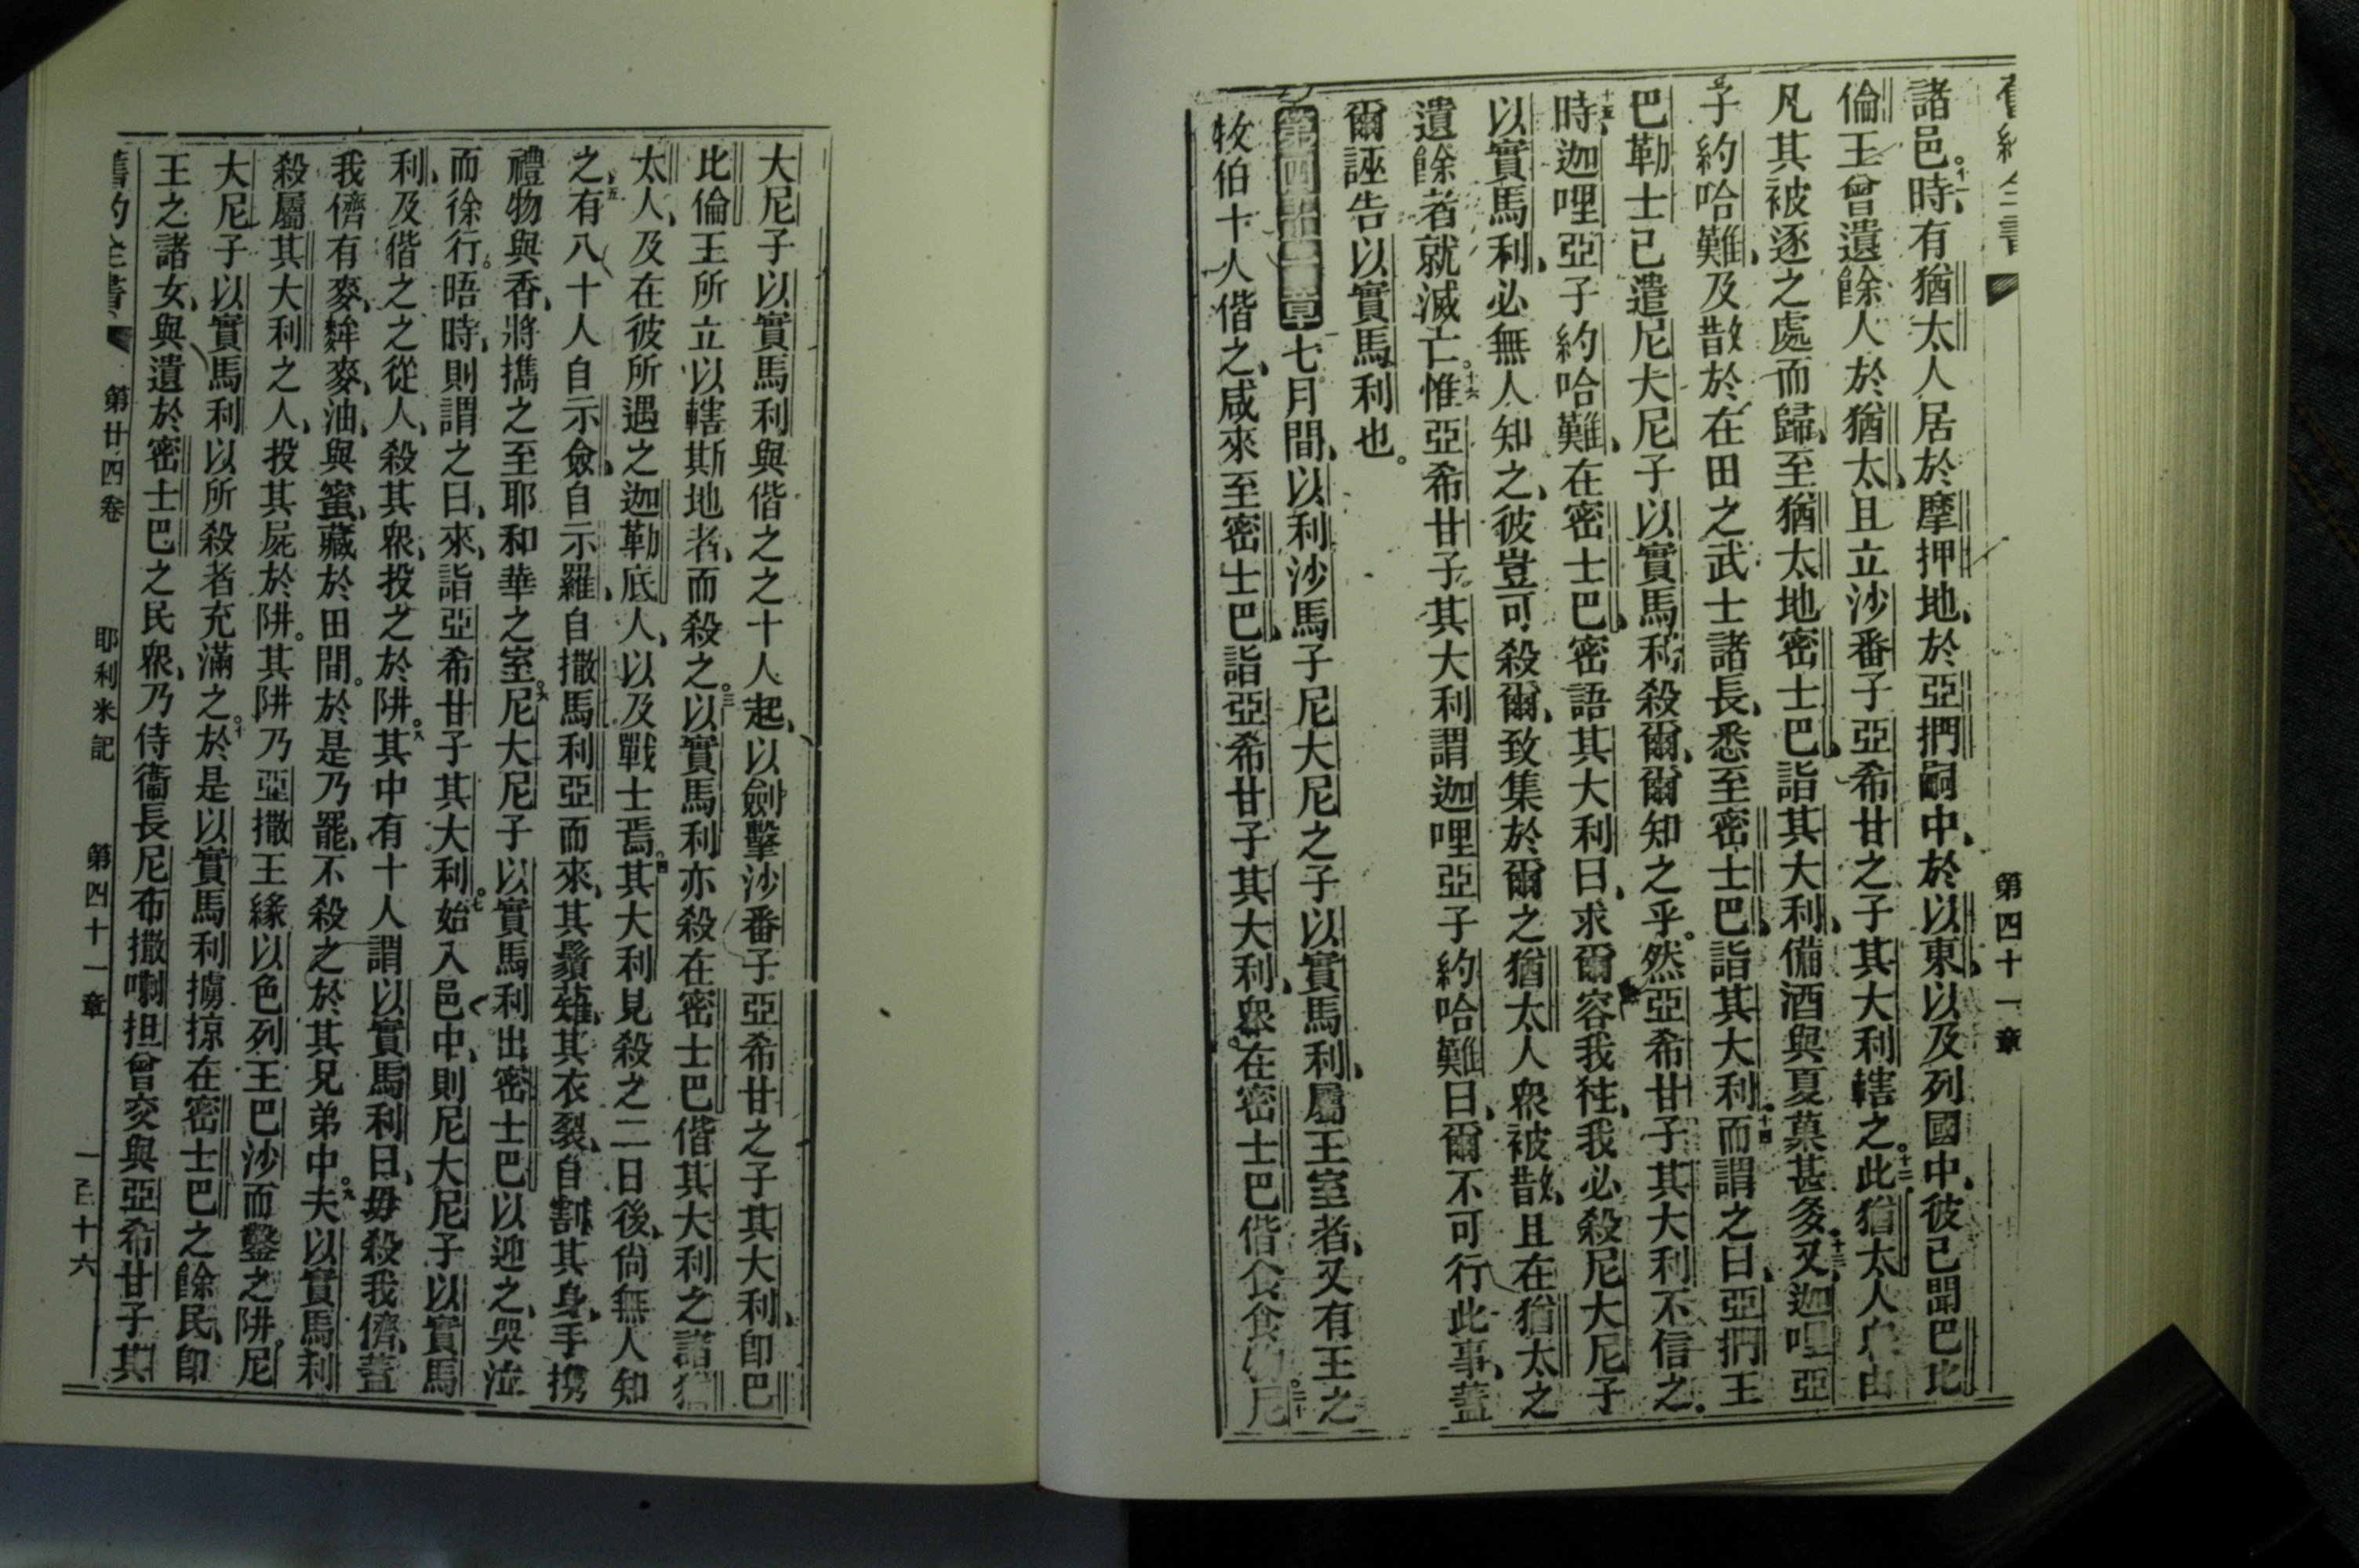 舊約全書 第四十一章
諸邑。十一時、有猶太人居於摩押地、於亞捫嗣中、於以東、以及列國中、彼已聞巴比
倫王曾遺餘人於猶太、且立沙番子亞希甘之子其大利轄之。十二此猶太人皆由
凡其被逐之處而歸、至猶太地密士巴、詣其大利、備酒與夏菓甚多。十三又迦哩亞
子約哈難、及散於在田之武士諸長、悉至密士巴、詣其大利。十四而謂之曰、亞捫王
巴勒士已遣尼大尼子以實馬利殺爾、爾知之乎。然亞希甘子其大利不信之。
十五時、迦哩亞子約哈難、在密士巴密語其大利曰、求爾容我徃、我必殺尼大尼子
以實馬利、必無人知之、彼豈可殺爾、致集於爾之猶太人眾被散、且在猶太之
遺餘者就滅亡。十六惟亞希甘子其大利謂迦哩亞子約哈難曰、爾不可行此事、蓋
爾誣告以實馬利也。
第四十一章 七月間、以利沙馬子尼大尼之子以實馬利、屬王室者、又有王之
牧伯十人偕之、咸來至密士巴、詣亞希甘子其大利、眾在密士巴偕食食物。二尼
大尼子以實馬利與偕之之十人起、以劍擊沙番子亞希甘之子其大利、即巴
比倫王所立以轄斯地者、而殺之。三以實馬利亦殺在密士巴偕其大利之諸猶
太人、及在彼所遇之迦勒底人、以及戰士焉。四其大利見殺之二日後、尙無人知
之、五有八十人自示劍、自示羅、自撒馬利亞而來、其鬚薙、其衣裂、自割其身、手携
禮物與香、將攜之至耶和華之室。六尼大尼子以實馬利出密士巴以迎之、哭泣
而徐行。晤時、則謂之曰、來、詣亞希甘子其大利。七始入邑中、則尼大尼子以實馬
利、及偕之之從人、殺其眾、投之於阱。八其中有十人謂以實馬利曰、毋殺我儕、蓋
我儕有麥、麰麥、油、與蜜、藏於田間。於是乃罷、不殺之於其兄弟中。九夫以實馬利
殺屬其大利之人、投其屍於阱。其阱乃亞撒王緣以色列王巴沙而鑿之阱。尼
大尼子以實馬利以所殺者充滿之。十於是以實馬利擄掠在密士巴之餘民、即
王之諸女、與遺於密士巴之民眾、乃侍衞長尼布撒喇担曾交與亞希甘子其
舊約全書 第廿四卷 耶利米記 第四十一章 一百十六